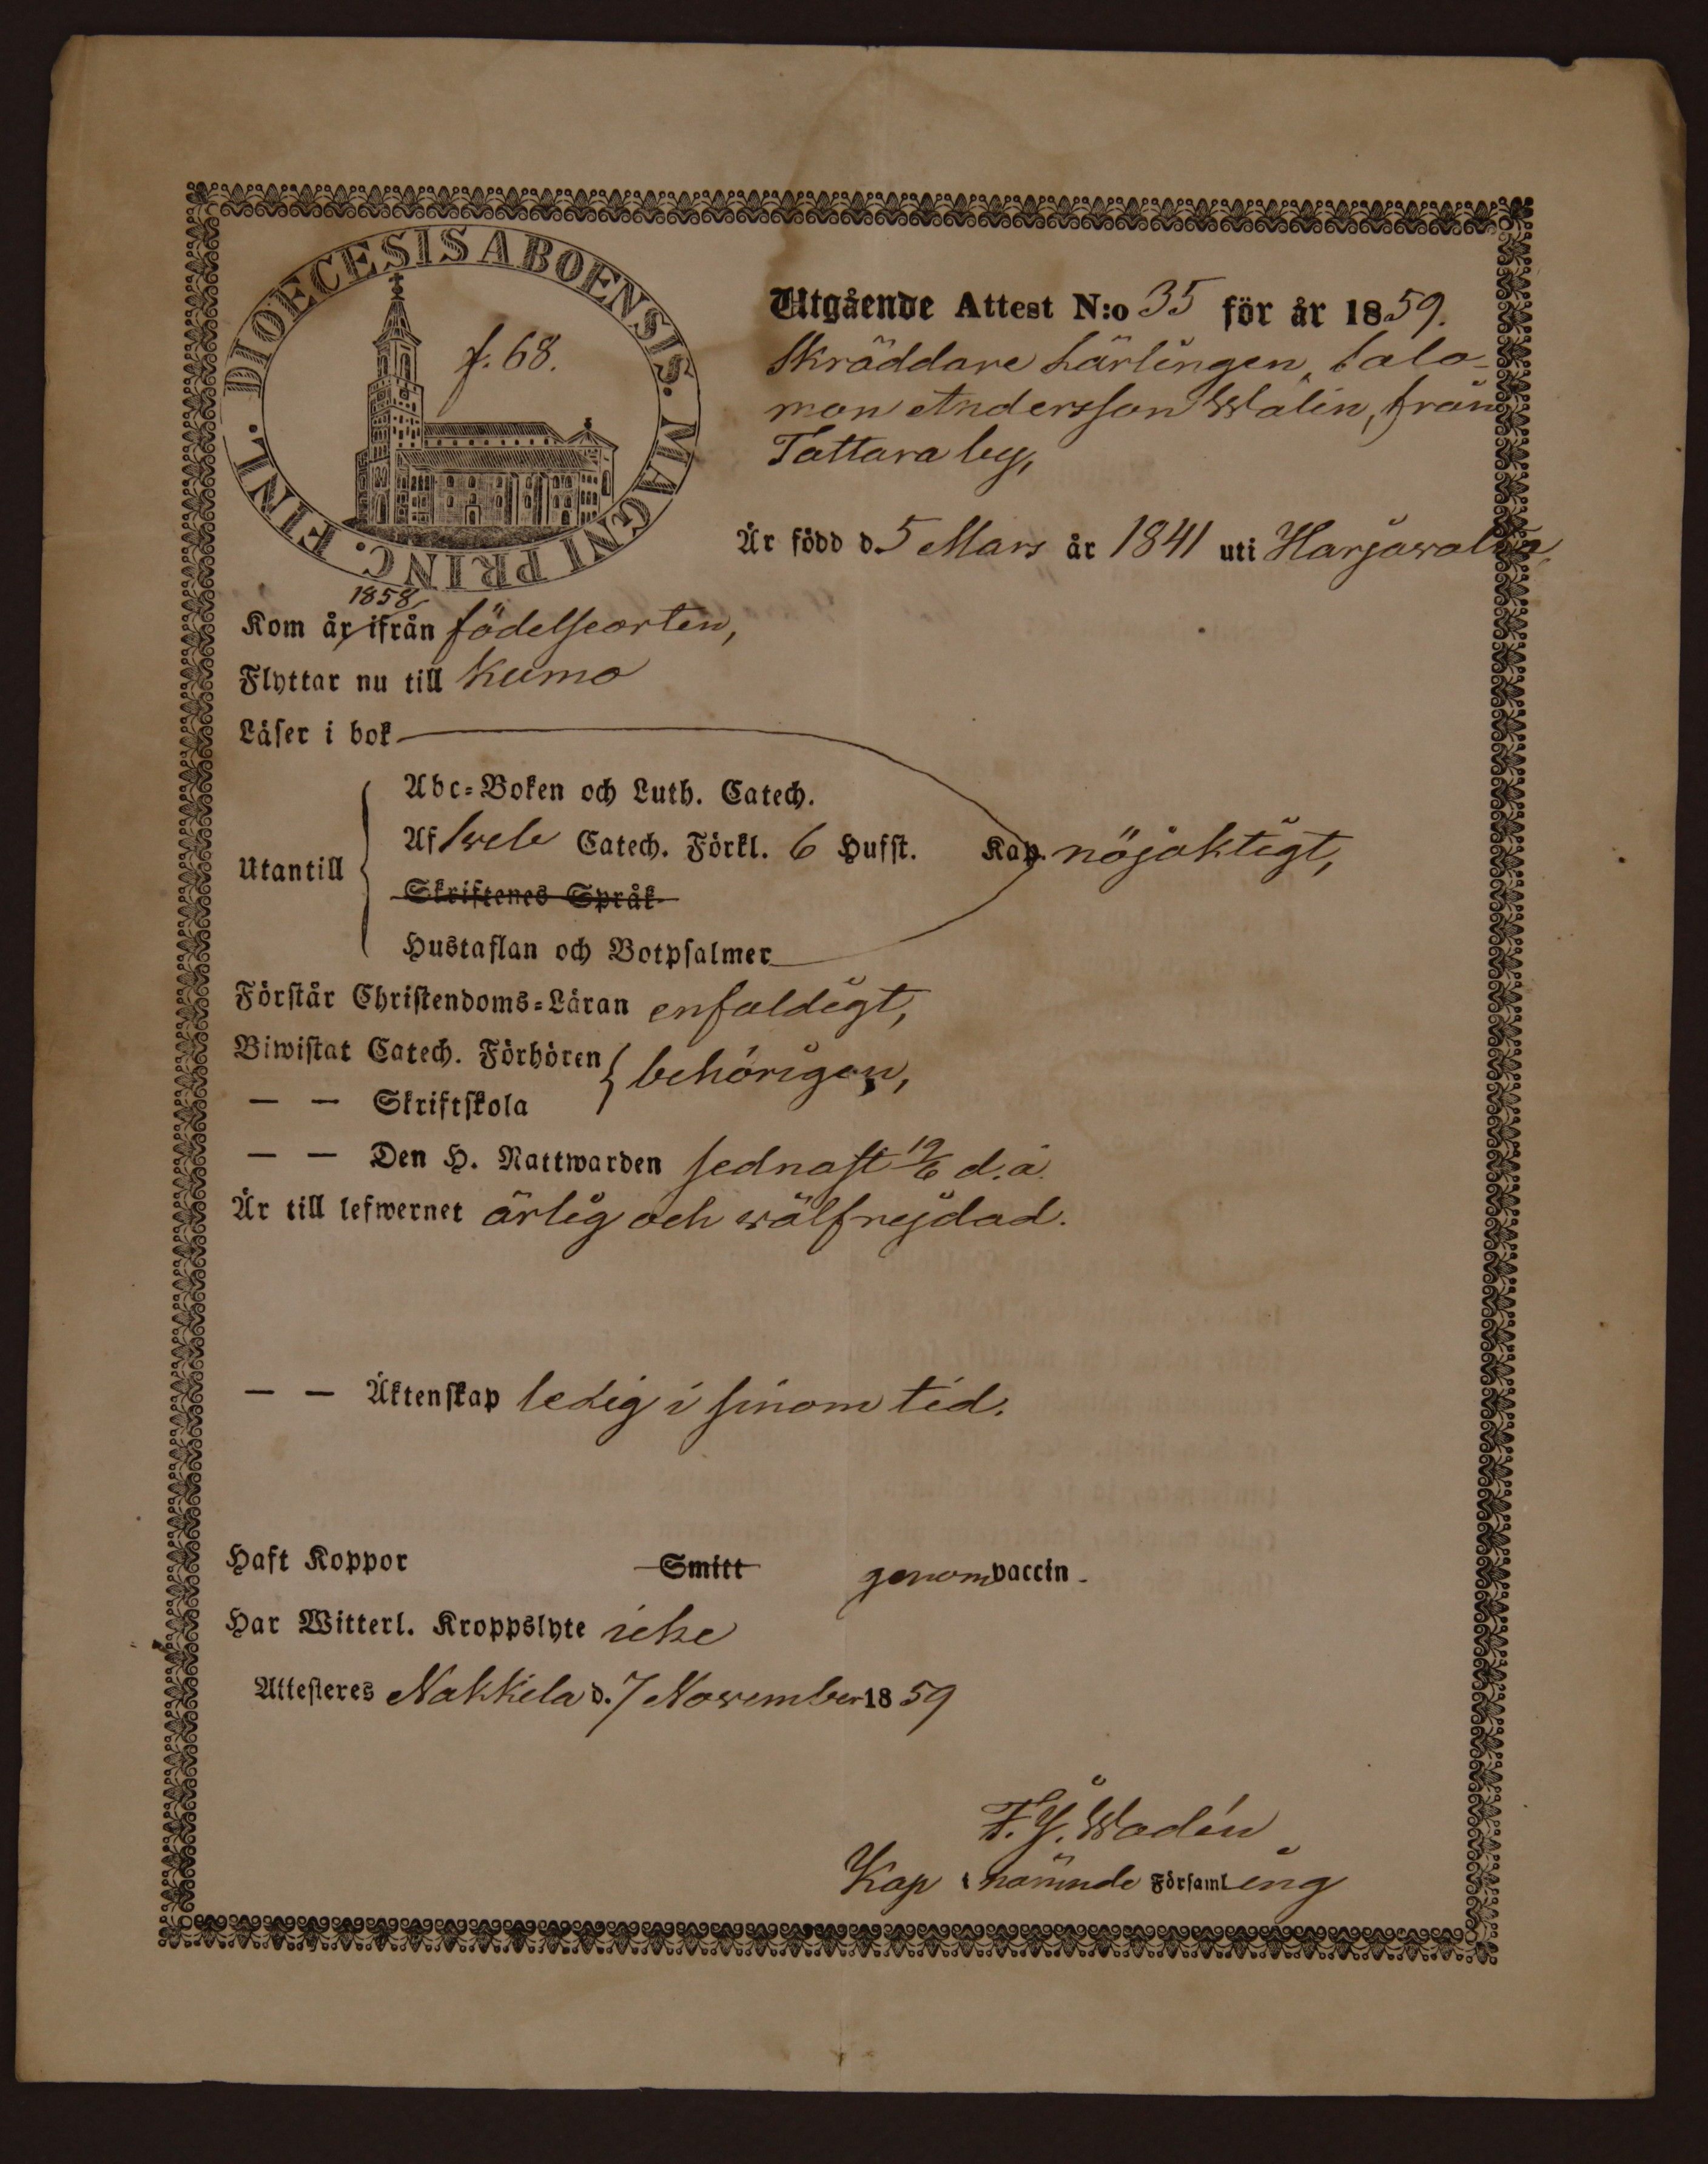 DIOECESIS ABOENSIS. MAGNI PRINC. FINL.
f. 68.
Utgående Attest N:o 35 för år 1859.
Skräddare Lärlingen, Salo-
mon Andersson Walin, från
Tattara by,
Är född d. 5 Mars år 1841 uti Harjawalta
1858,
Kom år ifrån födelseorten,
Flyttar nu till Kumo
Läser i bok
Utantill
Abc-Boken och Luth. Catech.
Af Sveb Catech. Förkl. 6 Hufst. Kap. nöjaktigt,
Skriftenes Språk
Hustaflan och Botpsalmer
Förstår Christendoms-Läran enfaldigt,
Biwistat Catech. Förhören
— — Skriftskola
behörigen,
— — Den H. Nattwarden sednast 12/6 d.å.
Är till lefwernet ärlig och wälfrejdad.
— — Äktenskap ledig i sinom tid.
Haft Koppor Smitt genom vaccin.
Har Witterl. Kroppslyte icke
Attesteres Nakkila d. 7 November 1859
F. Y. Wadén
Kap i nämnde Församling